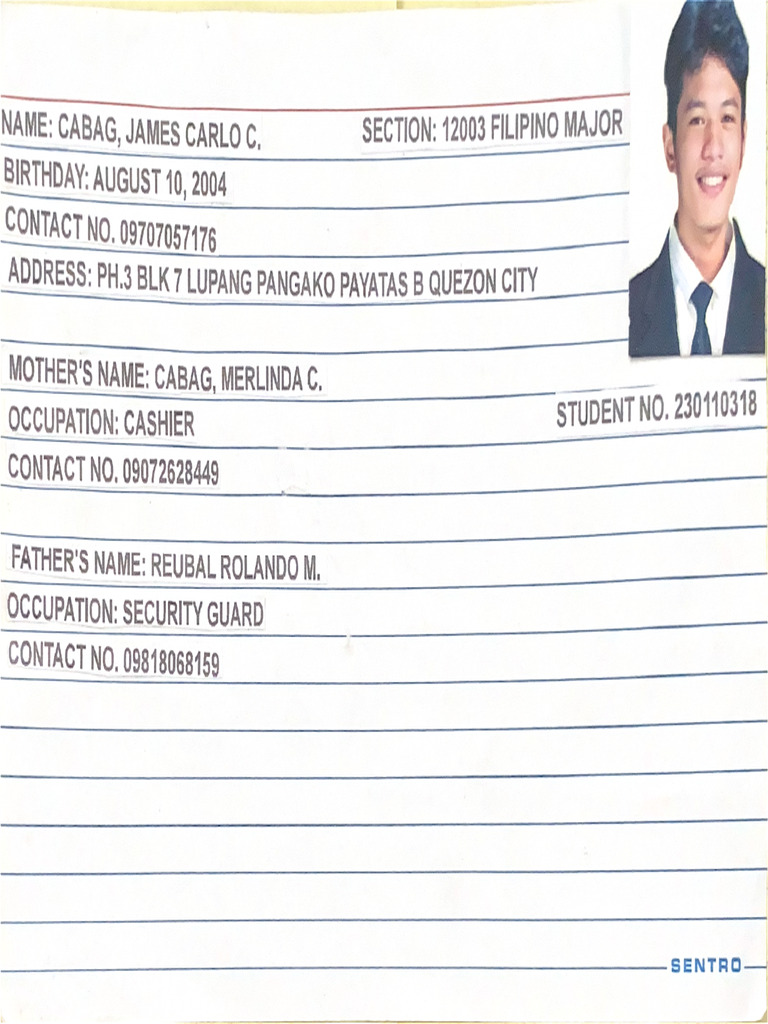 NAME: CABAG, JAMES CARLO C.
SECTION: 12003 FILIPINO MAJOR
BIRTHDAY: AUGUST 10, 2004
CONTACT NO. 09707057176
ADDRESS: PH.3 BLK 7 LUPANG PANGAKO PAYATAS B QUEZON CITY
MOTHER'S NAME: CABAG, MERLINDA C.
OCCUPATION: CASHIER
STUDENT NO. 230110318
CONTACT NO. 09072628449
FATHER'S NAME: REUBAL ROLANDO M.
OCCUPATION: SECURITY GUARD
CONTACT NO. 09818068159
SENTRO